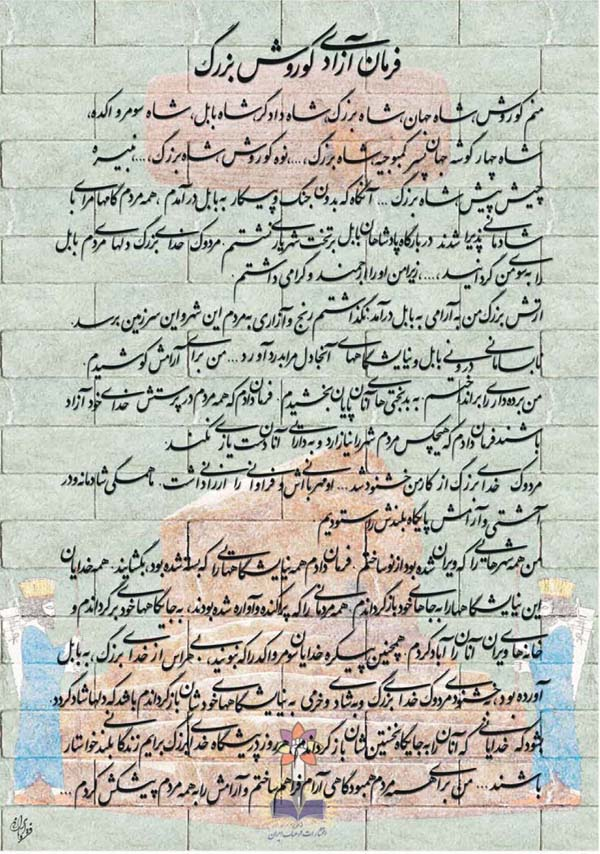 فرمان آزادی کوروش بزرگ
منم کوروش، شاه جهان، شاه بزرگ، شاه دادگر، شاه بابل، شاه سومر و اکد،
شاه چهار گوشه جهان، پسر کمبوجیه، شاه بزرگ، ...، نوه کوروش، شاه بزرگ، ...، نبیره
چیش پیش، شاه بزرگ ... آنگاه که بدون جنگ و پیکار به بابل درآمدم، همه مردم گامهای مرا با
شادمانی پذیرا شدند. در بارگاه پادشاهان بابل بر تخت شهریاری نشستم. مردوک خدای بزرگ دلهای مردم بابل
را به سوی من گردانید، ...، زیرا من او را ارجمند و گرامی داشتم.
ارتش بزرگ من به آرامی به بابل درآمد. نگذاشتم رنج و آزاری به مردم این شهر و این سرزمین برسد.
نابسامانی درونی بابل و نیایشگاههای آنجا دل مرا بدرد آورد ... من برای آرامش کوشیدم.
من برده داری را برانداختم، به بدبختی های آنان پایان بخشیدم. فرمان دادم که همه مردم در پرستش خدای خود آزاد
باشند. فرمان دادم که هیچکس مردم شهر را نیازارد و به دارایی آنان دست یازی نکند.
مردوک خدای بزرگ از کار من خشنود شد ... او مهربانی اش و فراوانی را ارزانی داشت. ما همگی شادمانه و در
آشتی و آرامش پایگاه بلندش را ستودیم
من همه شهرهایی را که ویران شده بود از نو ساختم. فرمان دادم همه نیایشگاههایی را که بسته شده بود، بگشایند. همه خدایان
این نیایشگاهها را به جاهای خود بازگرداندم. همه مردمانی را که پراکنده و آواره شده بودند، به جایگاههای خود برگرداندم و
خانه های ویران آنان را آباد کردم. همچنین پیکره خدایان سومر و اکد را که نبونید، بی هراس از خدای بزرگ، به بابل
آورده بود، به خشنودی مردوک خدای بزرگ و به شادی و خرمی به نیایشگاههای خودشان بازگرداندم. باشد که دلها شاد گردد
بشود که خدایانی که آنان را به جایگاه نخستین شان بازگرداندم، هر روز در پیشگاه خدای بزرگ برایم زندگانی بلند خواستار
باشند ... من برای همه مردم همبودگاهی آرام فراهم ساختم و آرامش را به همه مردم پیشکش کردم ...
انتشارات فرهنگ ایران